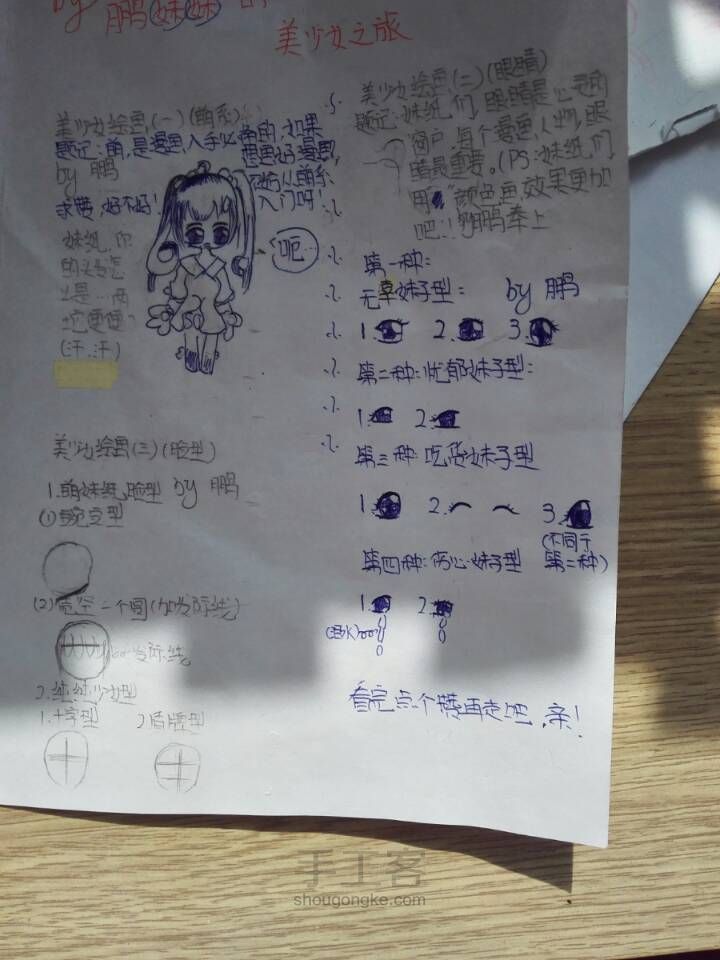 by 鹏妹妹的
美少女之旅
美少女绘画(一)(萌系)
题记:萌,是漫画入手必备的,如果
想画好漫画,
by 鹏
不妨从萌系
求赞,好不好!
入门吗!
妹纸,你
的头发怎
么是…两
坨便便?
(汗.汗)
呃…
美少女绘画(二)(眼睛)
题记:妹纸们,眼睛是心灵的
窗户,每个漫画人物,眼
睛最重要。(PS:妹纸们,
用 颜色画,效果更加
吧!)鹏奉上
第一种:
无辜妹子型: by 鹏
1. 2. 3.
第二种:忧郁妹子型:
1. 2.
第三种:吃货妹子型
1. 2. 3.
(不同于
第二种)
第四种:伤心妹子型
1. 2.
(泪水)
看完点个赞再走吧,亲!
美少女绘画(三)(脸型)
1.萌妹纸脸型 by 鹏
(1)
(2) 一个圆(加发际线)
发际线
2.纯纯少女型
1.十字型 2.盾牌型
手工客
shougongke.com